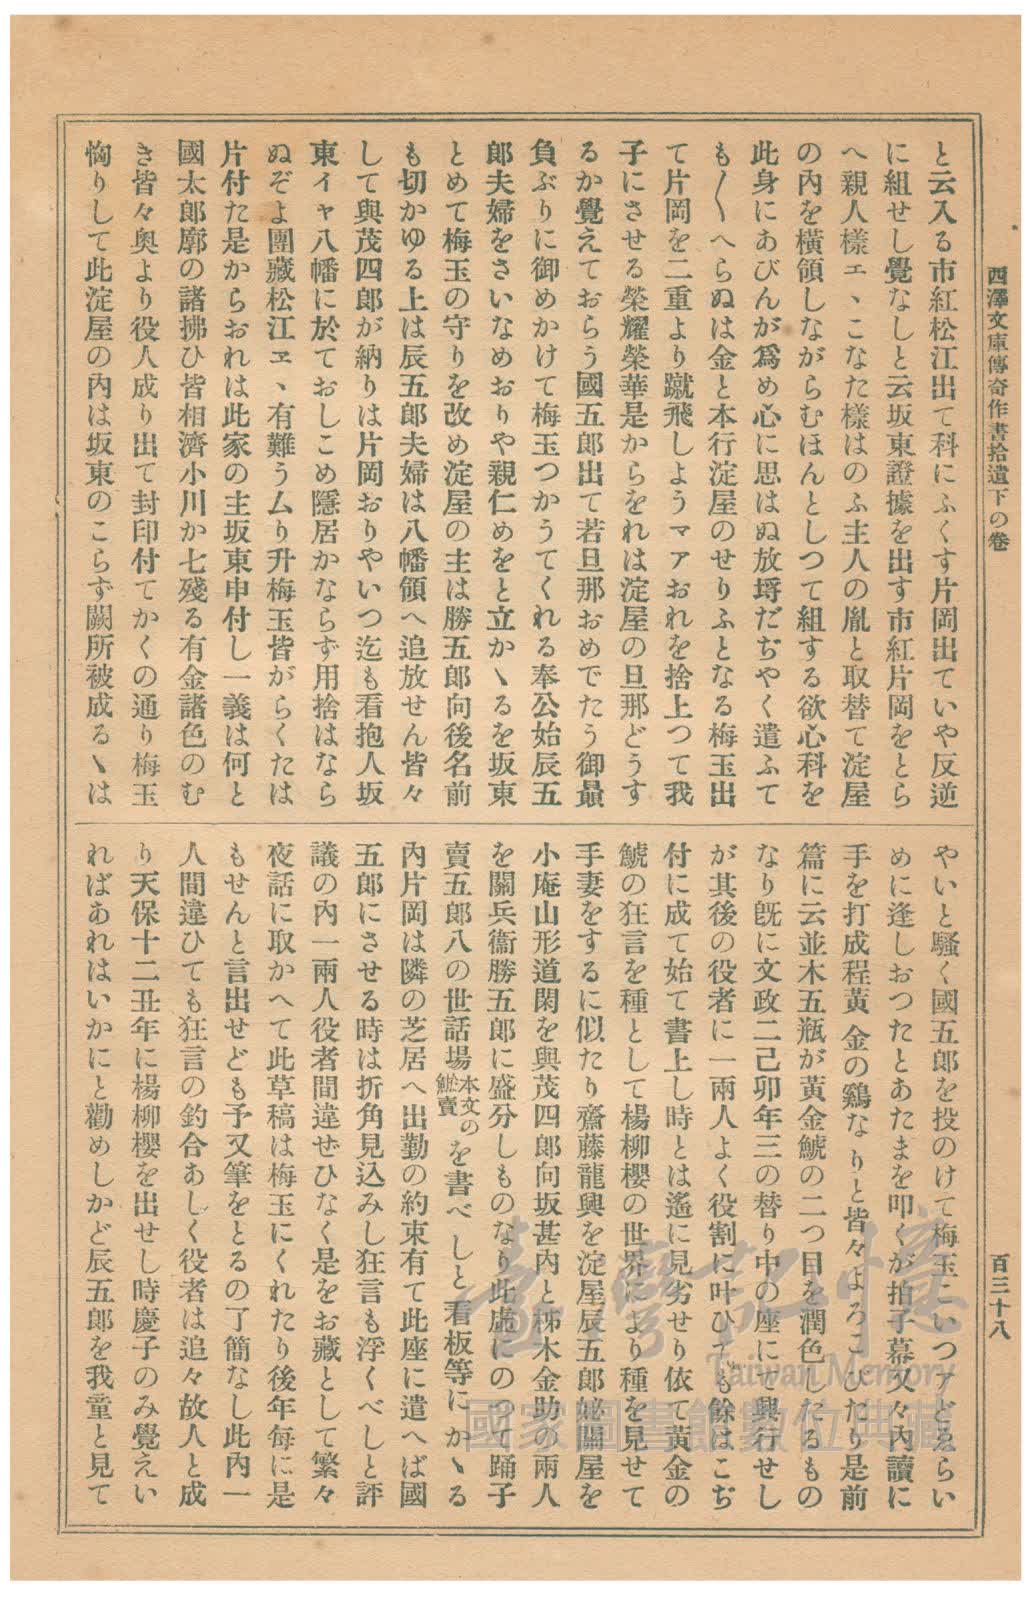 西澤文庫傳奇作書拾遺下の卷
百三十八
と云入る市紅松江出て科にふくす片岡出ていや反逆
に組せし覺なしと云坂東證據を出す市紅片岡をとら
へ親人樣エヽこなた樣はのふ主人の胤と取替て淀屋
の內を橫領しながらむほんとしつて組する欲心科を
此身にあびんが爲め心に思はぬ放埓だぢやく遣ふて
も〳〵へらぬは金と本行淀屋のせりふとなる梅玉出
て片岡を二重より蹴飛しようマアおれを捨上つて我
子にさせる榮耀榮華是からをれは淀屋の旦那どうす
るか覺えておらう國五郎出て若旦那おめでたう御贔
負ぶりに御めかけて梅玉つかうてくれる奉公始辰五
郎夫婦をさいなめおりや親仁めをと立かヽるを坂東
とめて梅玉の守りを改め淀屋の主は勝五郎向後名前
も切かゆる上は辰五郎夫婦は八幡領へ追放せん皆々
して與茂四郎が納りは片岡おりやいつ迄も看抱人坂
東イャ八幡に於ておしこめ隱居かならず用捨はなら
ぬぞよ團藏松江ヱヽ有難うムり升梅玉皆がらくたは
片付た是からおれは此家の主坂東申付し一義は何と
國太郎廓の諸拂ひ皆相濟小川か七殘る有金諸色のむ
き皆々奧より役人成り出て封印付てかくの通り梅玉
恟りして此淀屋の內は坂東のこらず闕所被成るヽは
やいと騷く國五郎を投のけて梅玉こいつアどゑらい
めに逢しおつたとあたまを叩くが拍子幕又々內讀に
手を打成程黃金の鷄なりと皆々よろこびたり是前
篇に云並木五瓶が黃金鯱の二つ目を潤色したるもの
なり旣に文政二己卯年三の替り中の座にて興行せし
が其後の役者に一兩人よく役割に叶ひても餘はこぢ
付に成て始て書上し時とは遙に見劣せり依て黃金の
鯱の狂言を種として楊柳櫻の世界により種を見せて
手妻をするに似たり齋藤龍興を淀屋辰五郎妣關屋を
小庵山形道閑を與茂四郎向坂甚內と柹木金助の兩人
を關兵衞勝五郎に盛分しものなり此虛にのつて踊子
賣五郎八の世話場本文の鯱賣を書べしと看板等にかヽる
內片岡は隣の芝居へ出勤の約束有て此座に遣へば國
五郎にさせる時は折角見込みし狂言も浮くべしと評
議の內一兩人役者間違ぜひなく是をお藏として繁々
夜話に取かへて此草稿は梅玉にくれたり後年每に是
もせんと言出せども予又筆をとるの了簡なし此內一
人間違ひても狂言の釣合あしく役者は追々故人と成
り天保十二丑年に楊柳櫻を出せし時慶子のみ覺えい
ればあれはいかにと勸めしかど辰五郎を我童と見て
臺灣記憶
Taiwan Memory
國家圖書館數位典藏